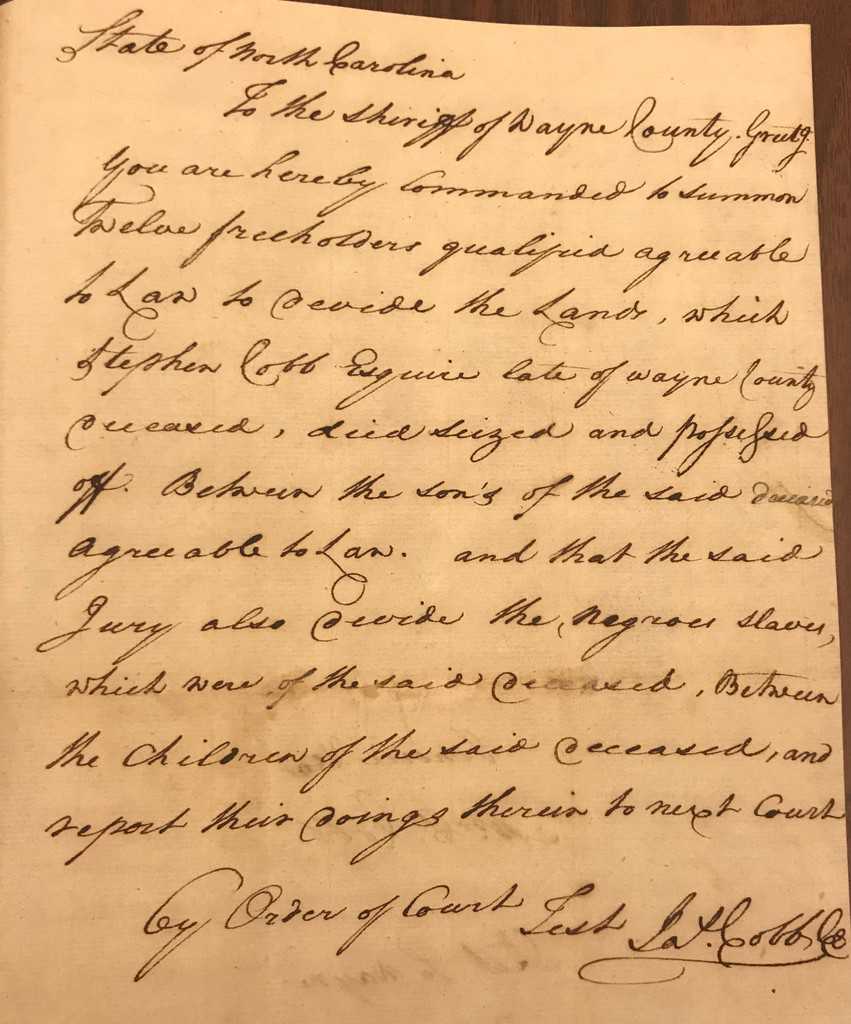 State of North Carolina
To the Shiriff of Wayne County. Greetg.
You are hereby Commanded to summon
Twelve freeholders qualifid agreeable
to Law to devide the Lands, which
Stephen Cobb Esquire late of Wayne County
deceased, died seized and possessed
off. Between the son's of the said deceased
agreeable to Law. and that the said
Jury also devide the Negroes slaves,
which were of the said deceased, Between
the Children of the said deceased, and
report their doings therein to next Court
by Order of Court Test Jas. Cobb CC